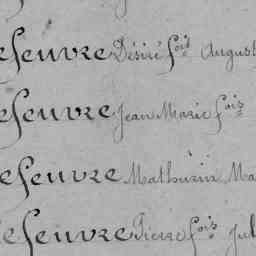 efeuvre Désiré fois August
efeuvre Jean Marie fois
efeuvre Mathurin Ma
efeuvre Pierre fois Jul